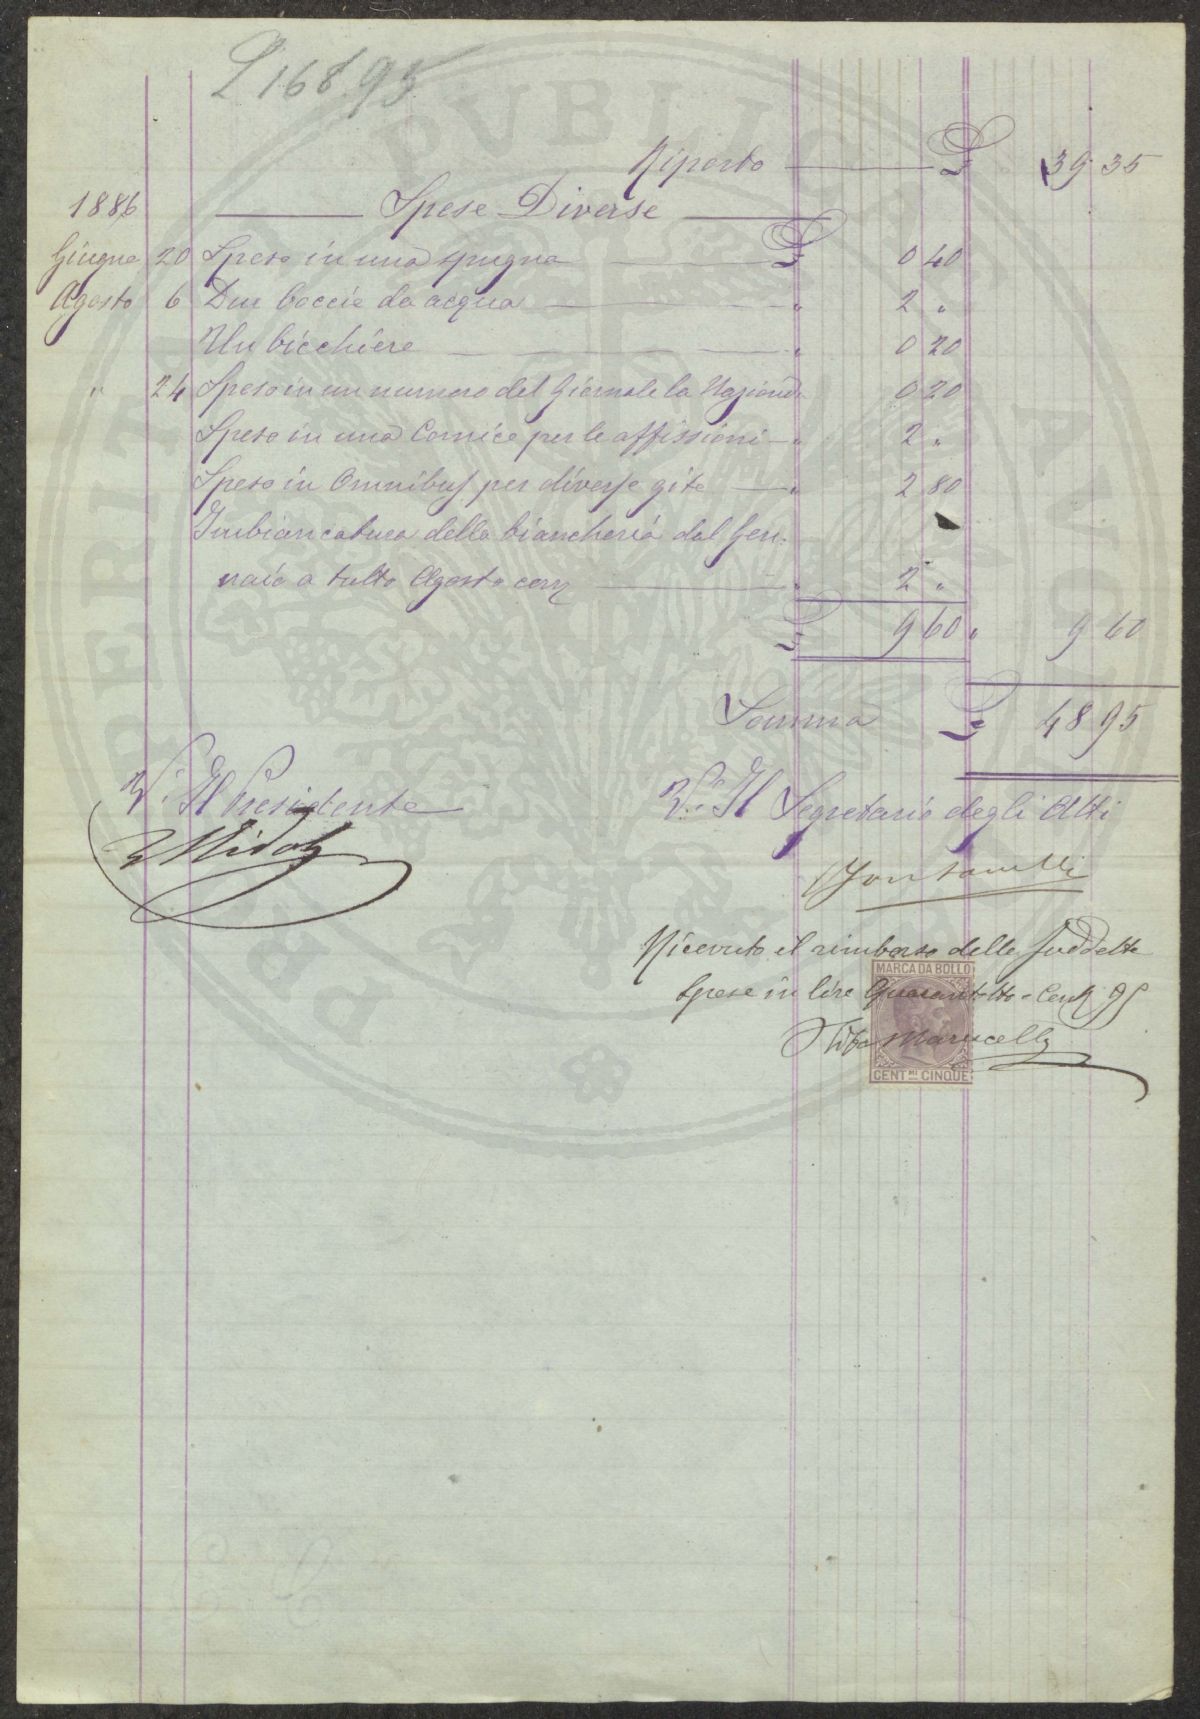 £ 168.95
Riporto £ 39 35
1886 Spese Diverse
Giugno 20 Speso in una spugna £ 0 40
Agosto 6 Due boccie da acqua " 2 "
Un bicchiere " 0 20
" 24 Speso in un numero del Giornale la Nazione " 0 20
Speso in una Cornice per le affissioni " 2 "
Speso in Omnibus per diverse gite " 2 80
Imbiancatura della biancheria dal Gen-
naio a tutto Agosto corr " 2 "
£ 9 60 " 9 60
Somma £ 48 95
V.° Il Presidente V.° Il Segretario degli Atti
Fontanelli
Ricevuto il rimborso delle suddette
Spese in lire Quarantotto e Cent 95
MARCA DA BOLLO
CENT.MI CINQUE